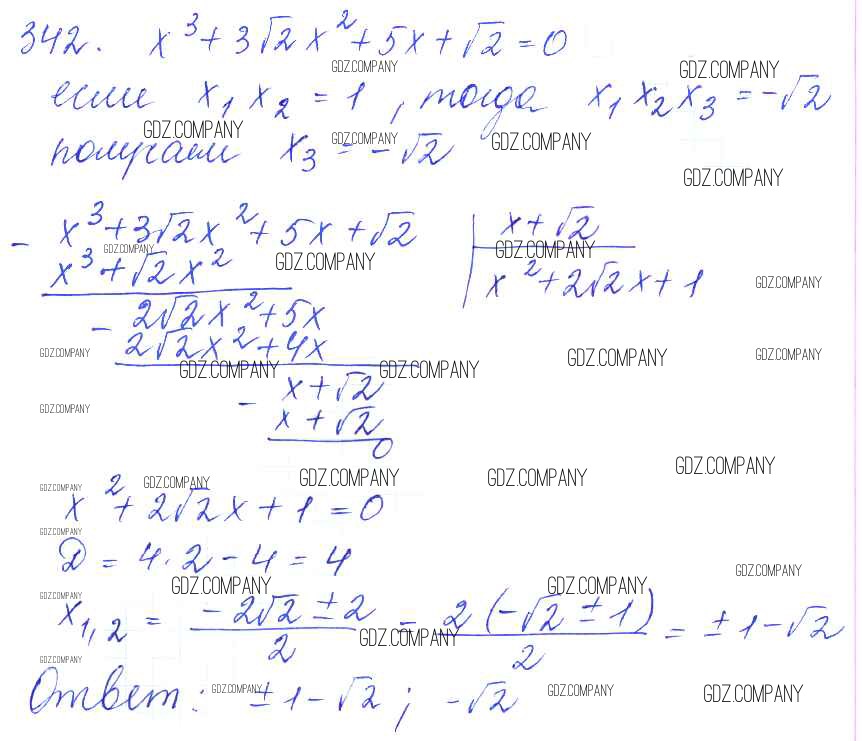 342. x³ + 3√2 x² + 5x + √2 = 0
GDZ.COMPANY GDZ.COMPANY
если x₁ x₂ = 1, тогда x₁ x₂ x₃ = -√2
GDZ.COMPANY GDZ.COMPANY GDZ.COMPANY
получаем x₃ = -√2
GDZ.COMPANY
- x³ + 3√2 x² + 5x + √2 | x + √2
GDZ.COMPANY GDZ.COMPANY GDZ.COMPANY
x³ + √2 x² | x² + 2√2 x + 1
GDZ.COMPANY
- 2√2 x² + 5x
2√2 x² + 4x
GDZ.COMPANY GDZ.COMPANY GDZ.COMPANY
GDZ.COMPANY GDZ.COMPANY
- x + √2
GDZ.COMPANY
x + √2
0
GDZ.COMPANY GDZ.COMPANY GDZ.COMPANY GDZ.COMPANY GDZ.COMPANY
x² + 2√2 x + 1 = 0
GDZ.COMPANY
D = 4 · 2 - 4 = 4
GDZ.COMPANY GDZ.COMPANY GDZ.COMPANY
GDZ.COMPANY
x₁,₂ = (-2√2 ± 2)/2 = 2(-√2 ± 1)/2 = ±1 - √2
GDZ.COMPANY
GDZ.COMPANY
Ответ: ±1 - √2; -√2
GDZ.COMPANY GDZ.COMPANY GDZ.COMPANY